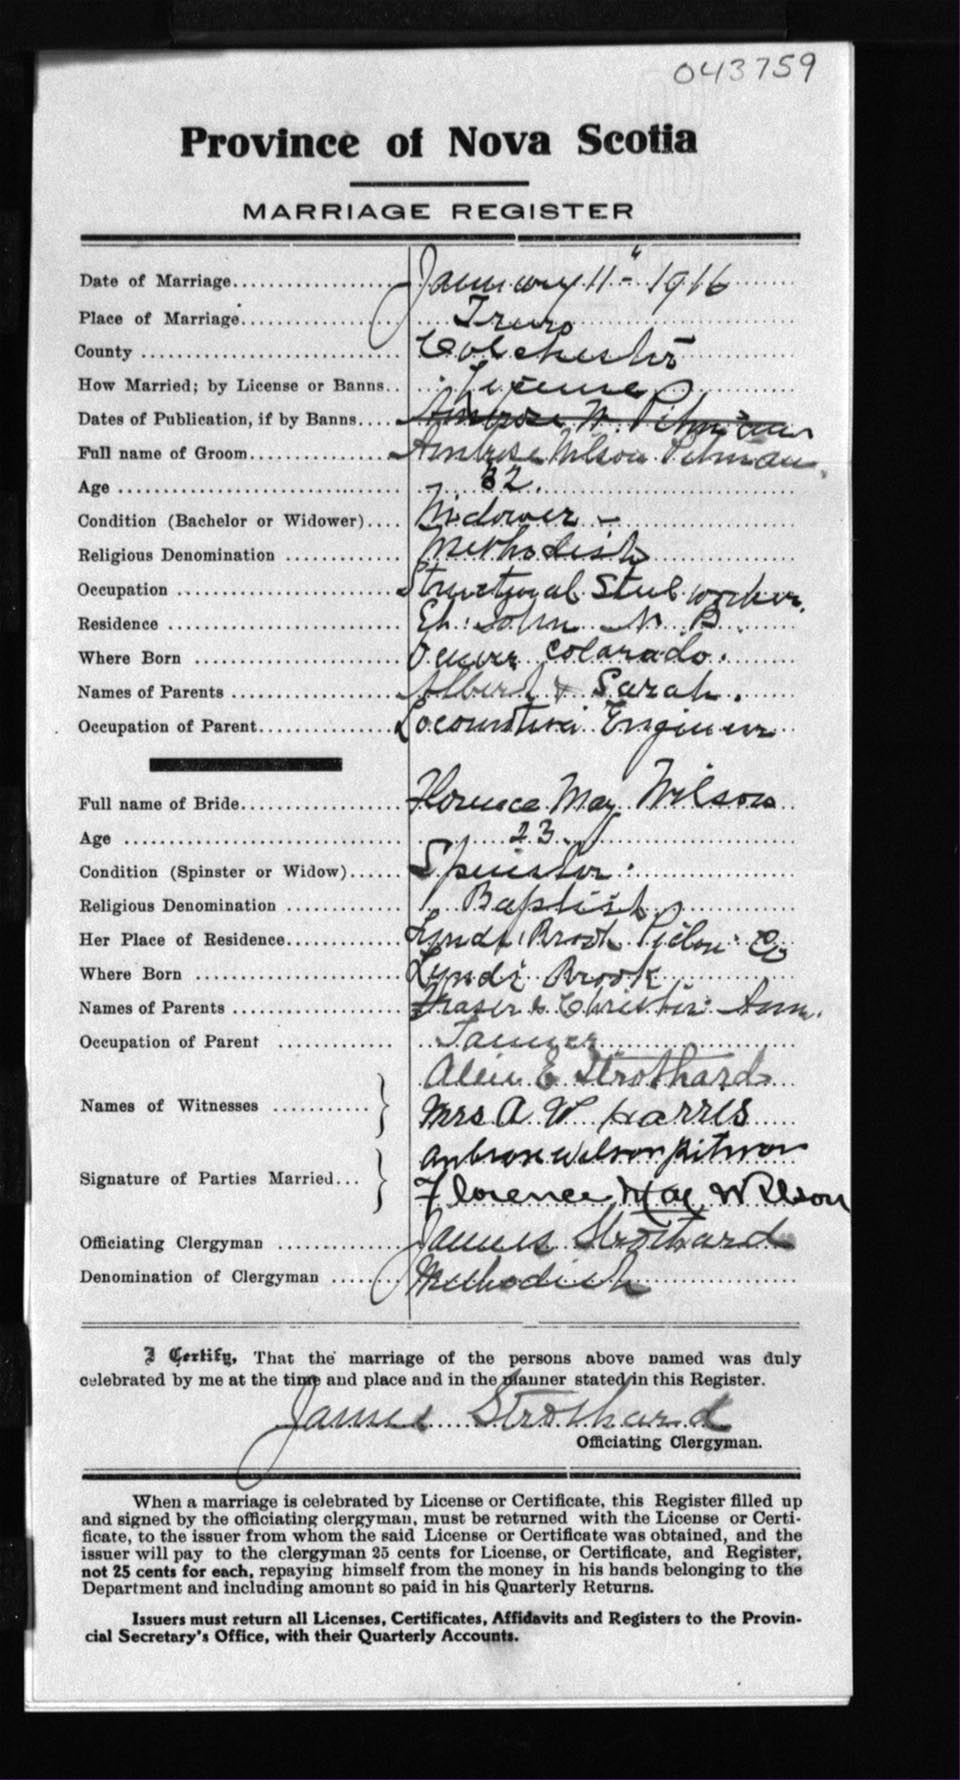 043759
Province of Nova Scotia
MARRIAGE REGISTER
Date of Marriage January 11" 1916
Place of Marriage Truro
County Colchester
How Married; by License or Banns License
Dates of Publication, if by Banns Ambrose W. Pitman
Full name of Groom Ambrose Wilson Pitman
Age 32.
Condition (Bachelor or Widower) Widower -
Religious Denomination Methodist
Occupation Structural Steel worker.
Residence St. John N. B.
Where Born Denver Colarado.
Names of Parents Albert & Sarah.
Occupation of Parent Locomotive Engineer
Full name of Bride Florence May Wilson
Age 23.
Condition (Spinster or Widow) Spinster
Religious Denomination Baptist
Her Place of Residence Brook Co
Where Born Brook
Names of Parents Fraser & Christie Ann.
Occupation of Parent
Names of Witnesses E Strothard
Mrs A. W. Harris
Signature of Parties Married Ambrose Wilson Pitman
Florence May Wilson
Officiating Clergyman James Strothard
Denomination of Clergyman Methodist
I Certify, That the marriage of the persons above named was duly
celebrated by me at the time and place and in the manner stated in this Register.
James Strothard
Officiating Clergyman.
When a marriage is celebrated by License or Certificate, this Register filled up
and signed by the officiating clergyman, must be returned with the License or Certi-
ficate, to the issuer from whom the said License or Certificate was obtained, and the
issuer will pay to the clergyman 25 cents for License, or Certificate, and Register,
not 25 cents for each, repaying himself from the money in his hands belonging to the
Department and including amount so paid in his Quarterly Returns.
Issuers must return all Licenses, Certificates, Affidavits and Registers to the Provin-
cial Secretary's Office, with their Quarterly Accounts.